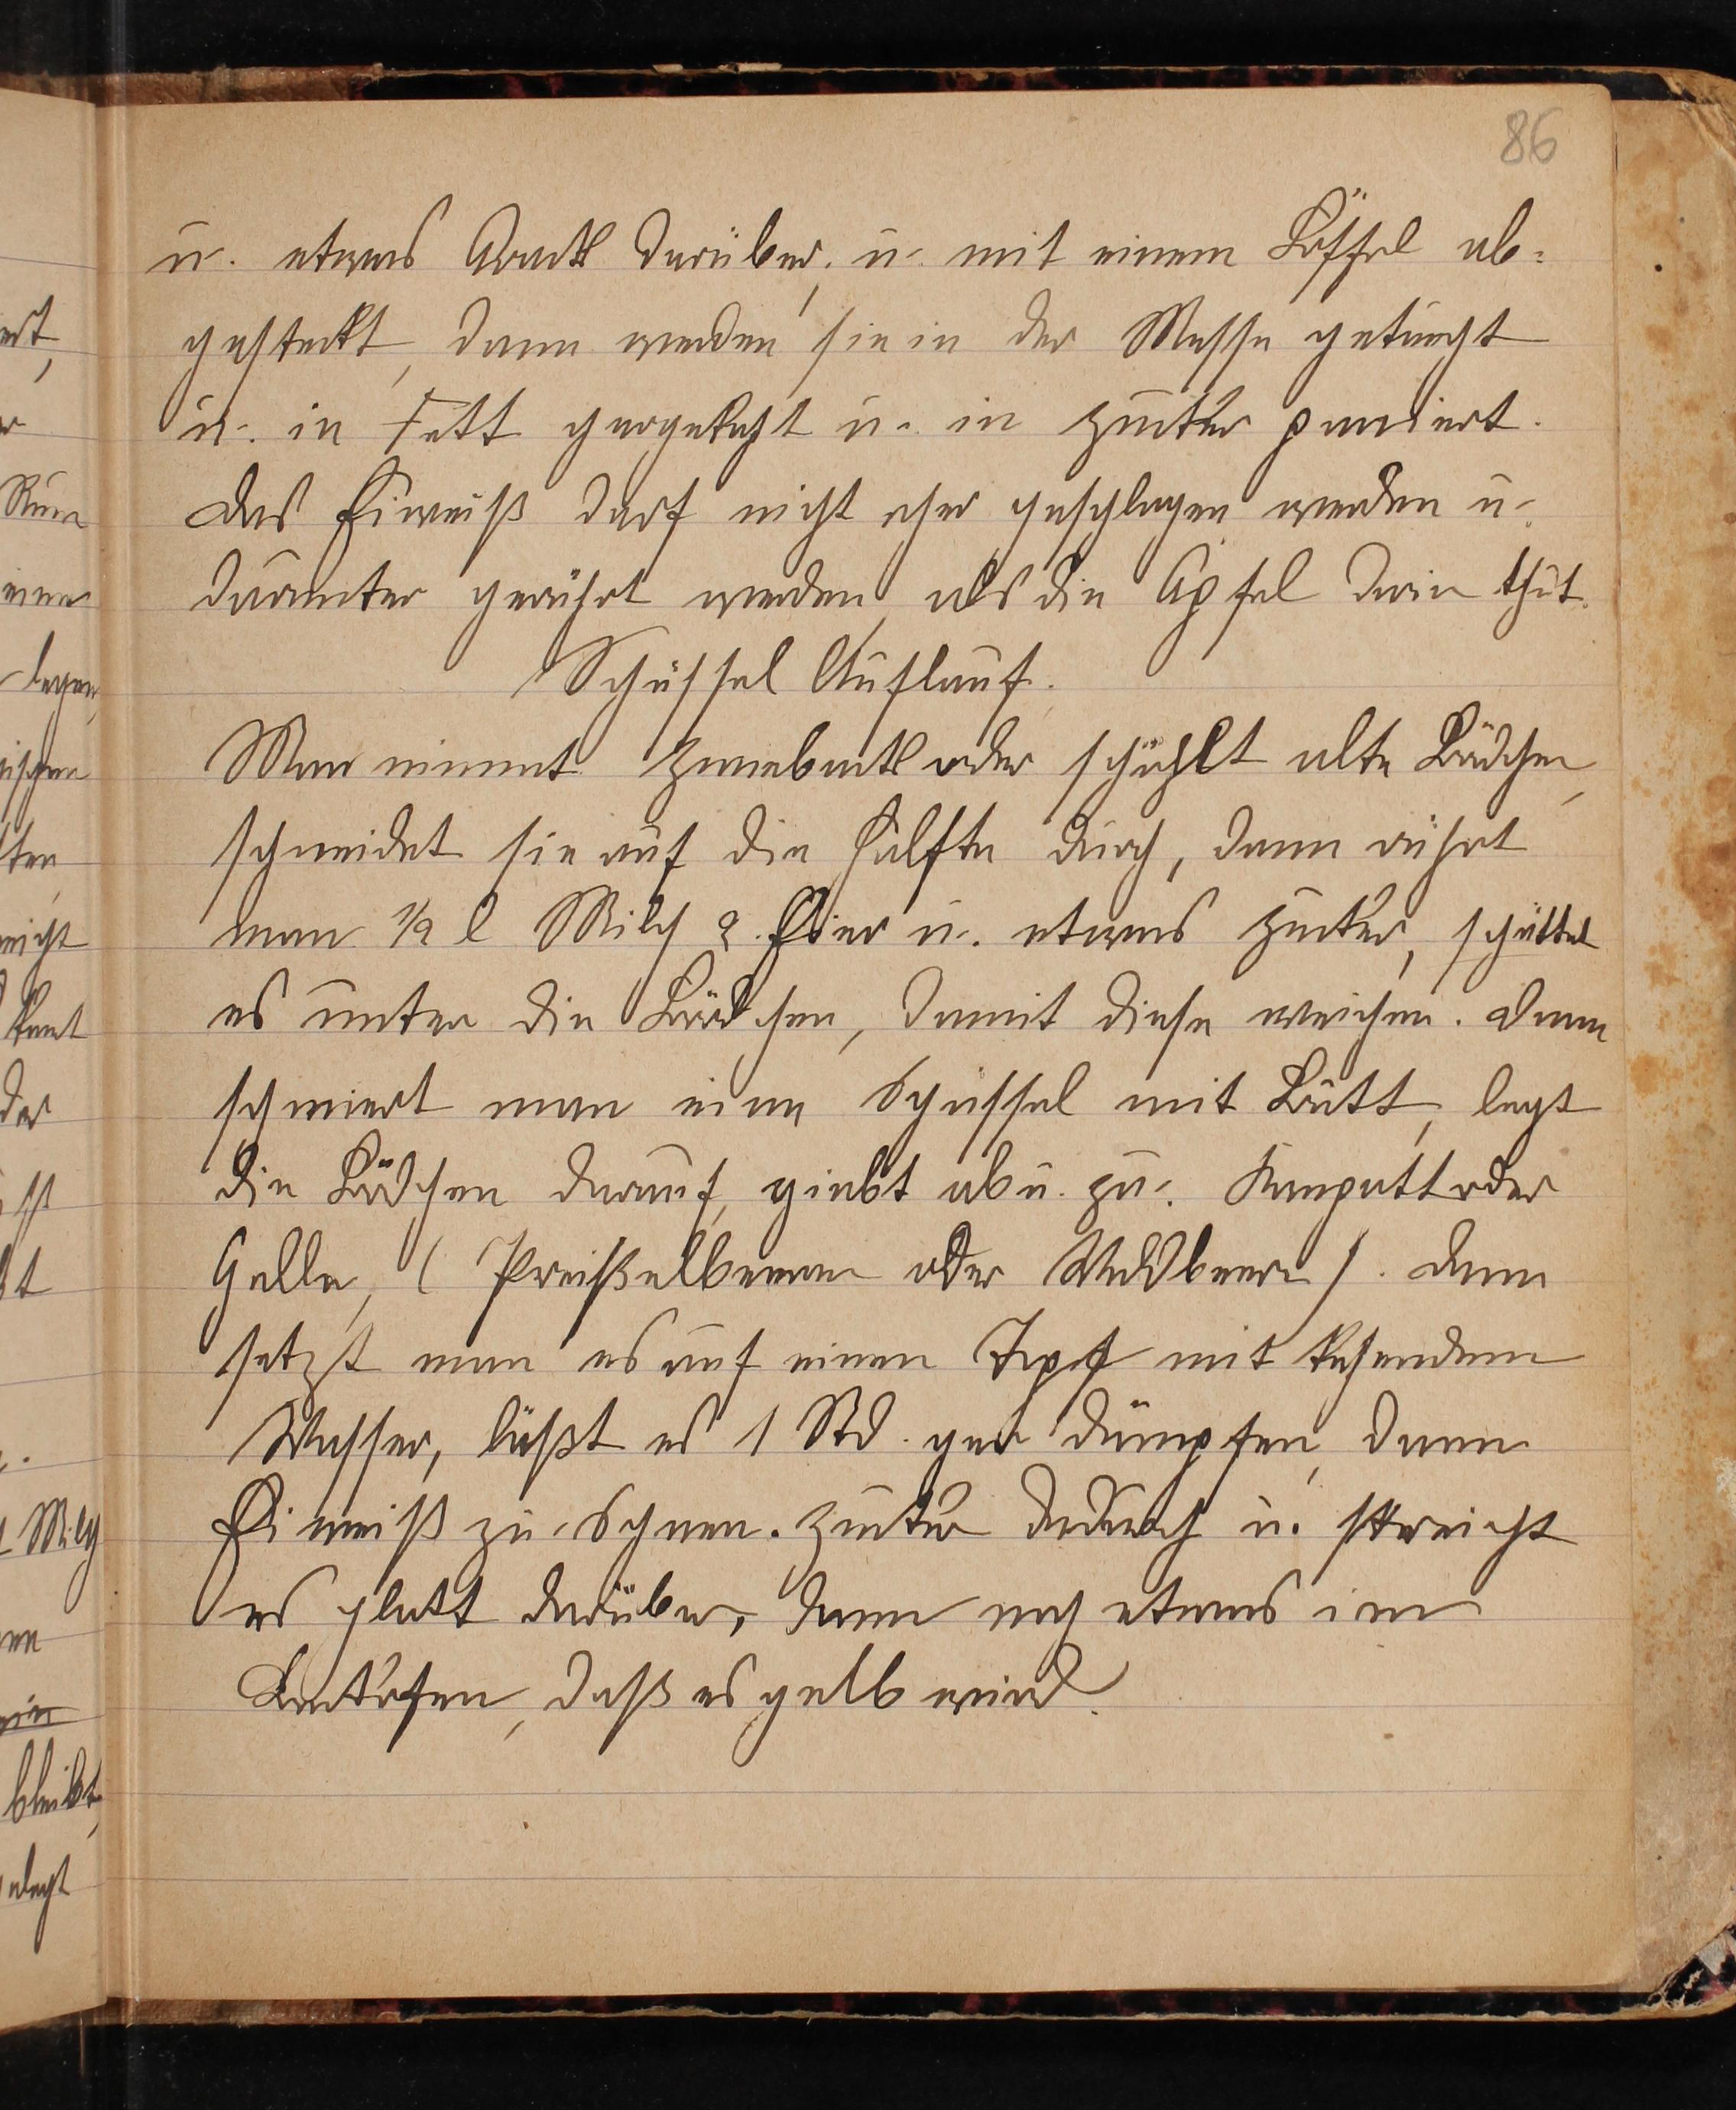 86
u. etwas Arack darüber, u. mit einem Löffel ab=
gesteckt, dann werden sie in der Masse getaucht
u. in Fett gargekocht u. in Zucker paniert.
Das Eiweiß darf nicht eher geschlagen werden u.
darunter gerührt werden, als die Äpfel darin thut.
Schüssel Auflauf.
Man nimmt Zwieback oder schählt alte Brödchen,
schneidet sie auf die Hälfte durch, dann rührt
man ½ l Milch 2 Eier u. etwas Zucker, schüttet
es unter die Brödchen, damit diese weichen. Dann
schmiert man eine Schüssel mit Butt, legt
die Brödchen darauf, giebt ab u. zu Kompott oder
Gelle, (Preißelbeeren oder Waldbeeren). Dann
setzt man es auf einen Topf mit kochendem
Wasser, läßt es 1 Std. gar dämpfen, dann
Eiweiß zu Schnee. Zucker dadurch u. streicht
es glatt darüber, dann noch etwas im
Backofen, daß es gelb wird.